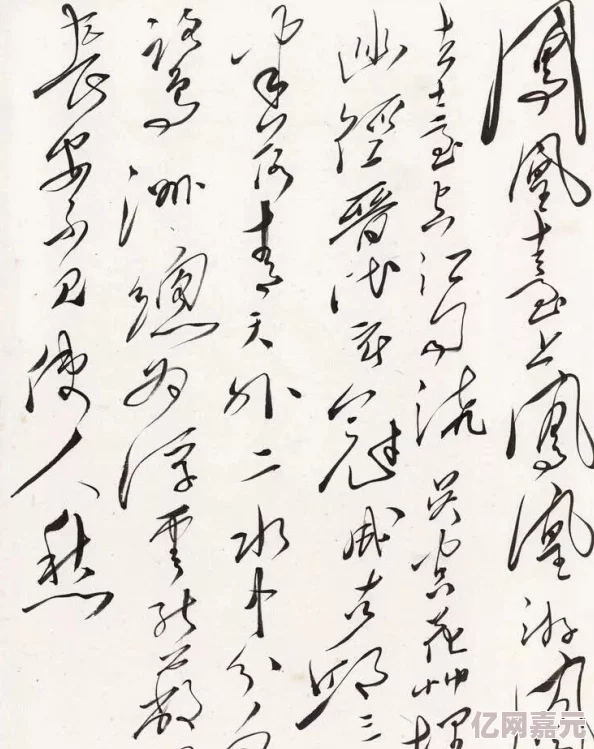 鳳凰臺上鳳凰游鳳
去臺空江自流吳宮花艸埋
幽徑晉代衣冠成古邱三
半落青天外二水中分
鷺洲總為浮雲能蔽
長安不見使人愁
亿网嘉元